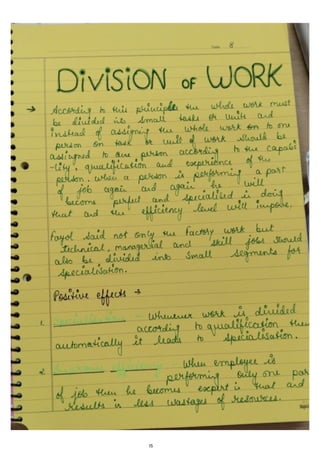 Date 8
DIVISION OF WORK
→ According to this principle the whole work must
be divided into small tasks or units and
instead of assigning the whole work on to one
person one task or unit of work should be
assigned to one person according to the capabi
-lity, qualification and experience of the
person. When a person is performing a part
of job again and again he will
become perfect and specialised in doing
that and the efficiency level will improve.
Fayol said not only the factory work but
technical, managerial and skill jobs should
also be divided into small segments for
specialisation.
Positive effects →
1. Specialisation - Whenever work is divided
according to qualification then
automatically it leads to specialisation.
2. efficiency - When employee is
performing only one part
of job then he becomes expert in that and
results in less wastages of resources.
15